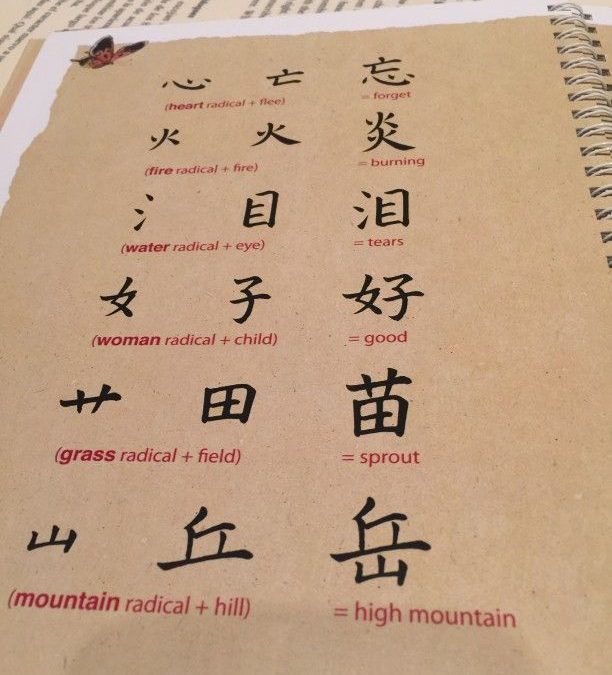 心 亡 忘
(heart radical + flee) = forget
火 火 炎
(fire radical + fire) = burning
氵 目 泪
(water radical + eye) = tears
女 子 好
(woman radical + child) = good
艹 田 苗
(grass radical + field) = sprout
山 丘 岳
(mountain radical + hill) = high mountain